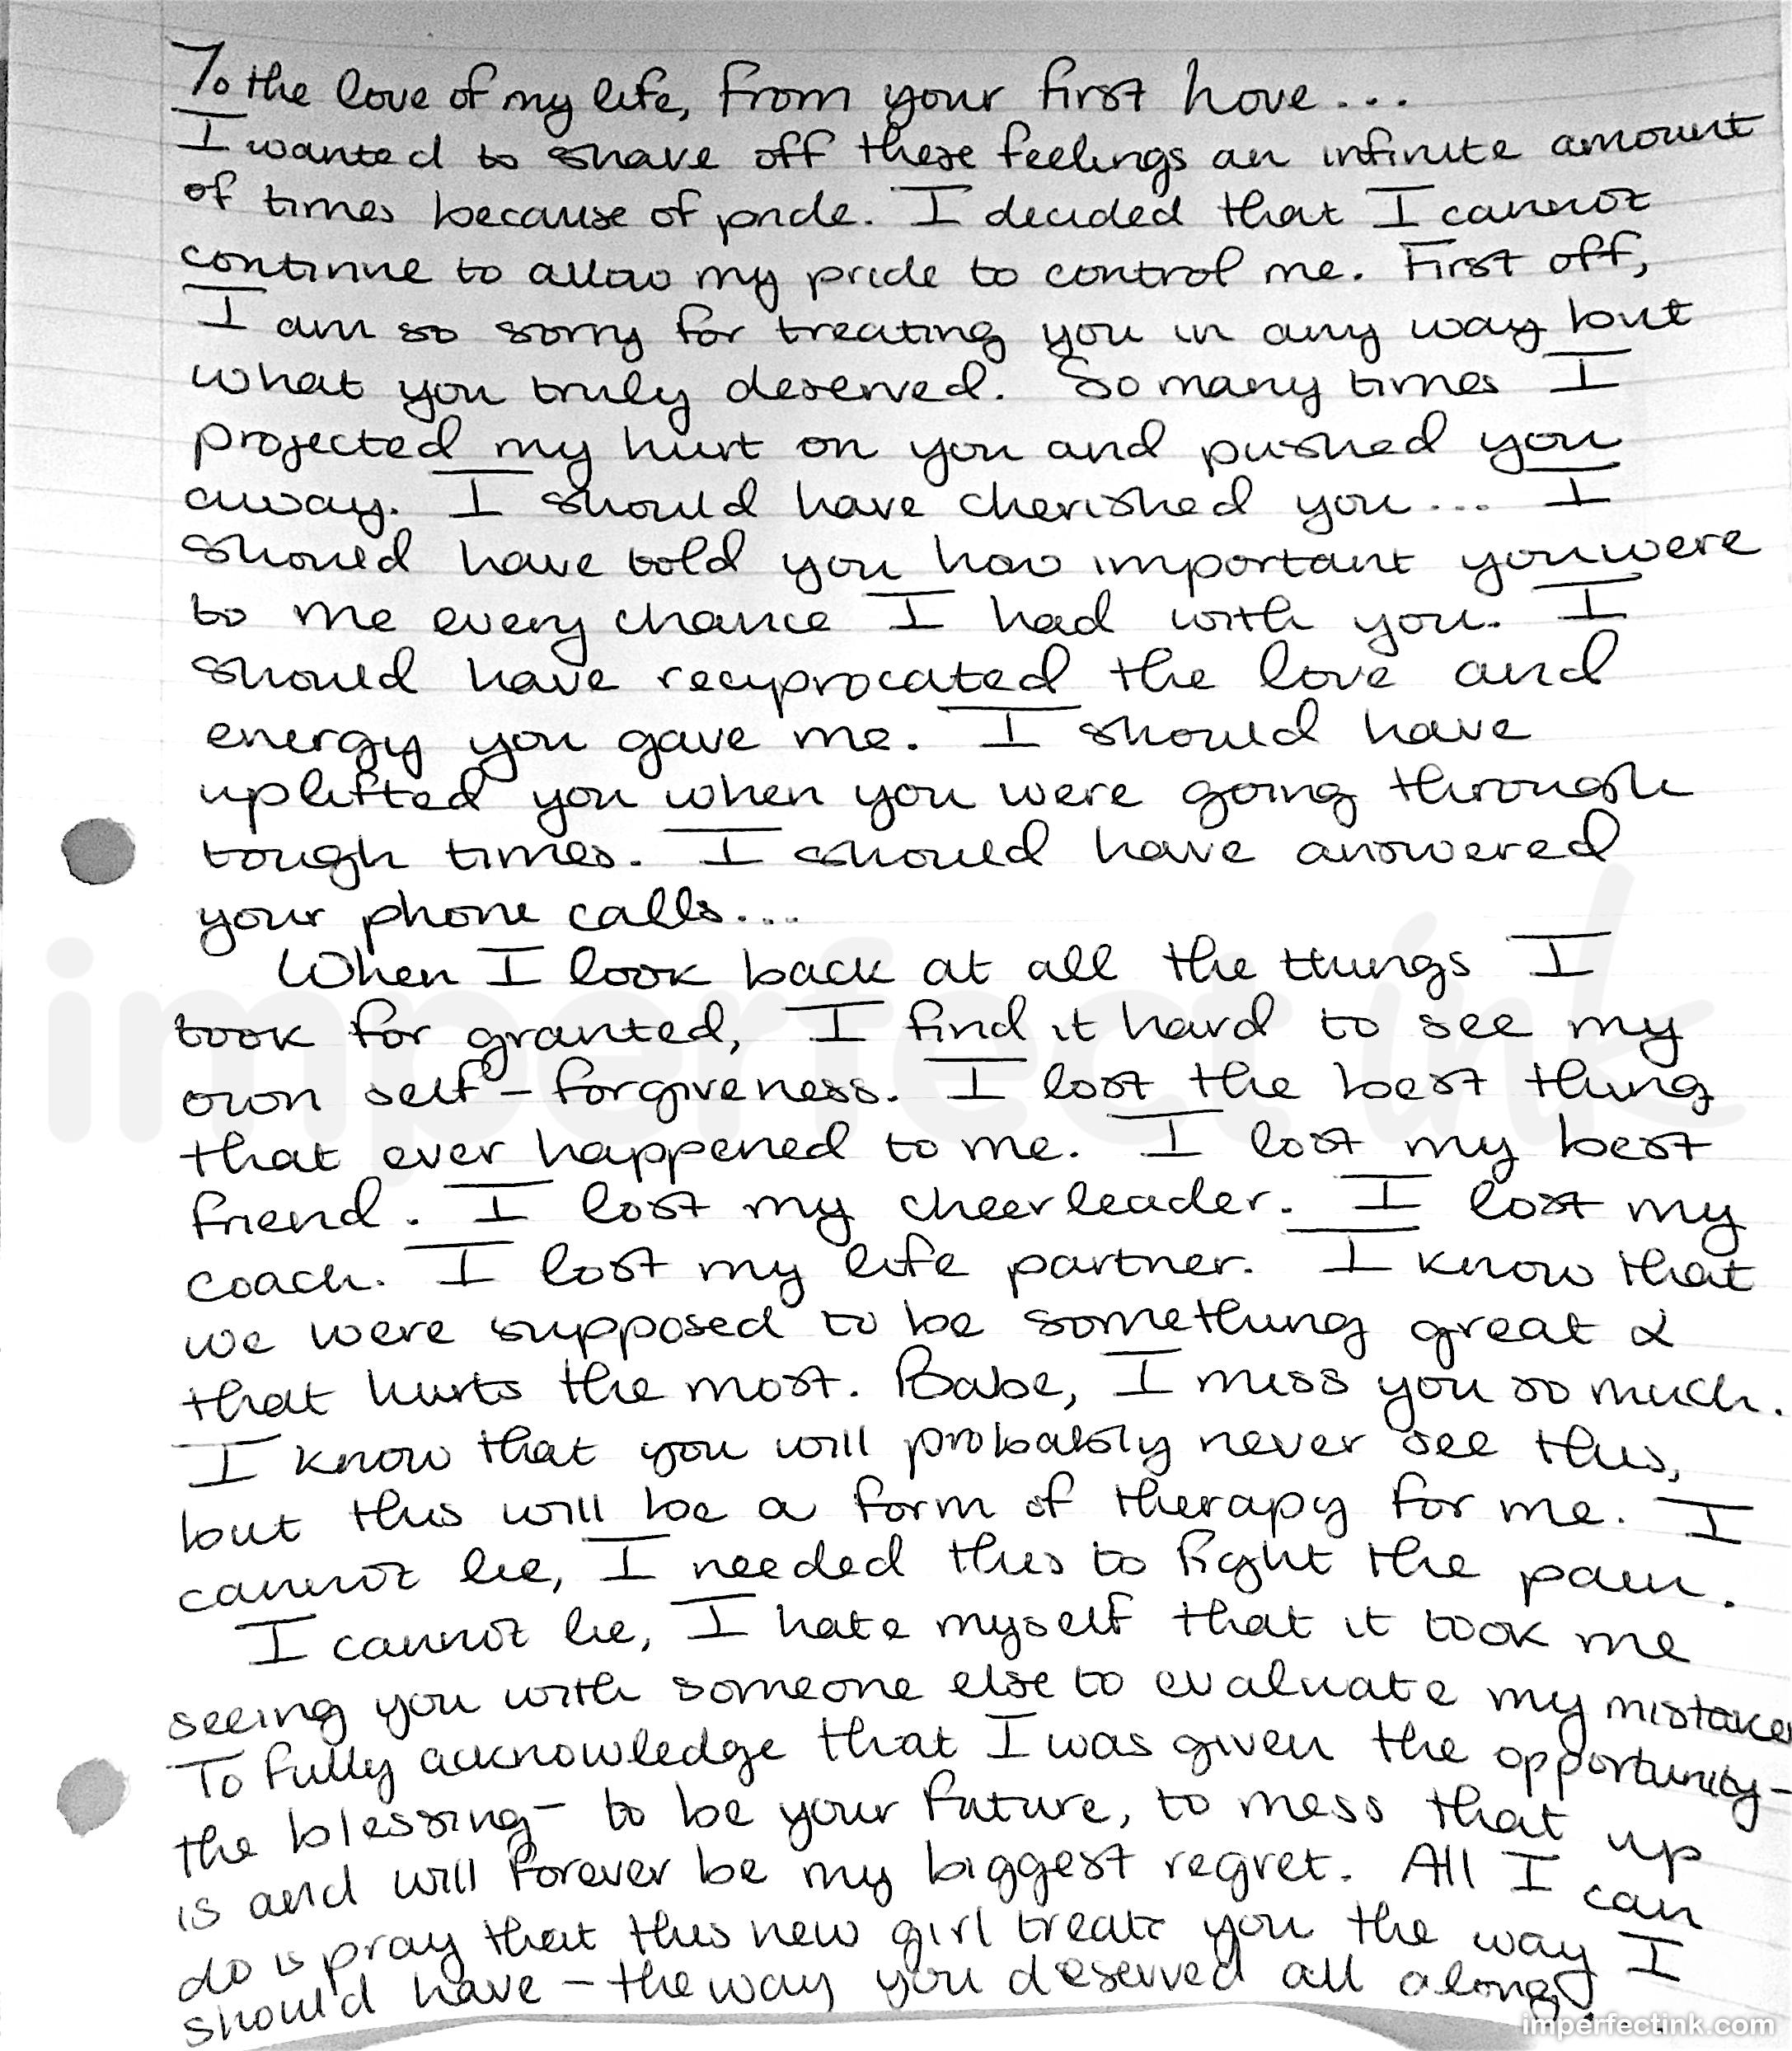 To the love of my life, from your first love...
I wanted to shave off these feelings an infinite amount
of times because of pride. I decided that I cannot
continue to allow my pride to control me. First off,
I am so sorry for treating you in any way but
what you truly deserved. So many times I
projected my hurt on you and pushed you
away. I should have cherished you... I
should have told you how important you were
to me every chance I had with you. I
should have reciprocated the love and
energy you gave me. I should have
uplifted you when you were going through
tough times. I should have answered
your phone calls...
When I look back at all the things I
took for granted, I find it hard to see my
own self-forgiveness. I lost the best thing
that ever happened to me. I lost my best
friend. I lost my cheerleader. I lost my
coach. I lost my life partner. I know that
we were supposed to be something great &
that hurts the most. Babe, I miss you so much.
I know that you will probably never see this,
but this will be a form of therapy for me. I
cannot lie, I needed this to fight the pain.
I cannot lie, I hate myself that it took me
seeing you with someone else to evaluate my mistakes
To fully acknowledge that I was given the opportunity-
the blessing- to be your future, to mess that up
is and will forever be my biggest regret. All I can
do is pray that this new girl treats you the way I
should have - the way you deserved all along.
imperfect ink
imperfectink.com